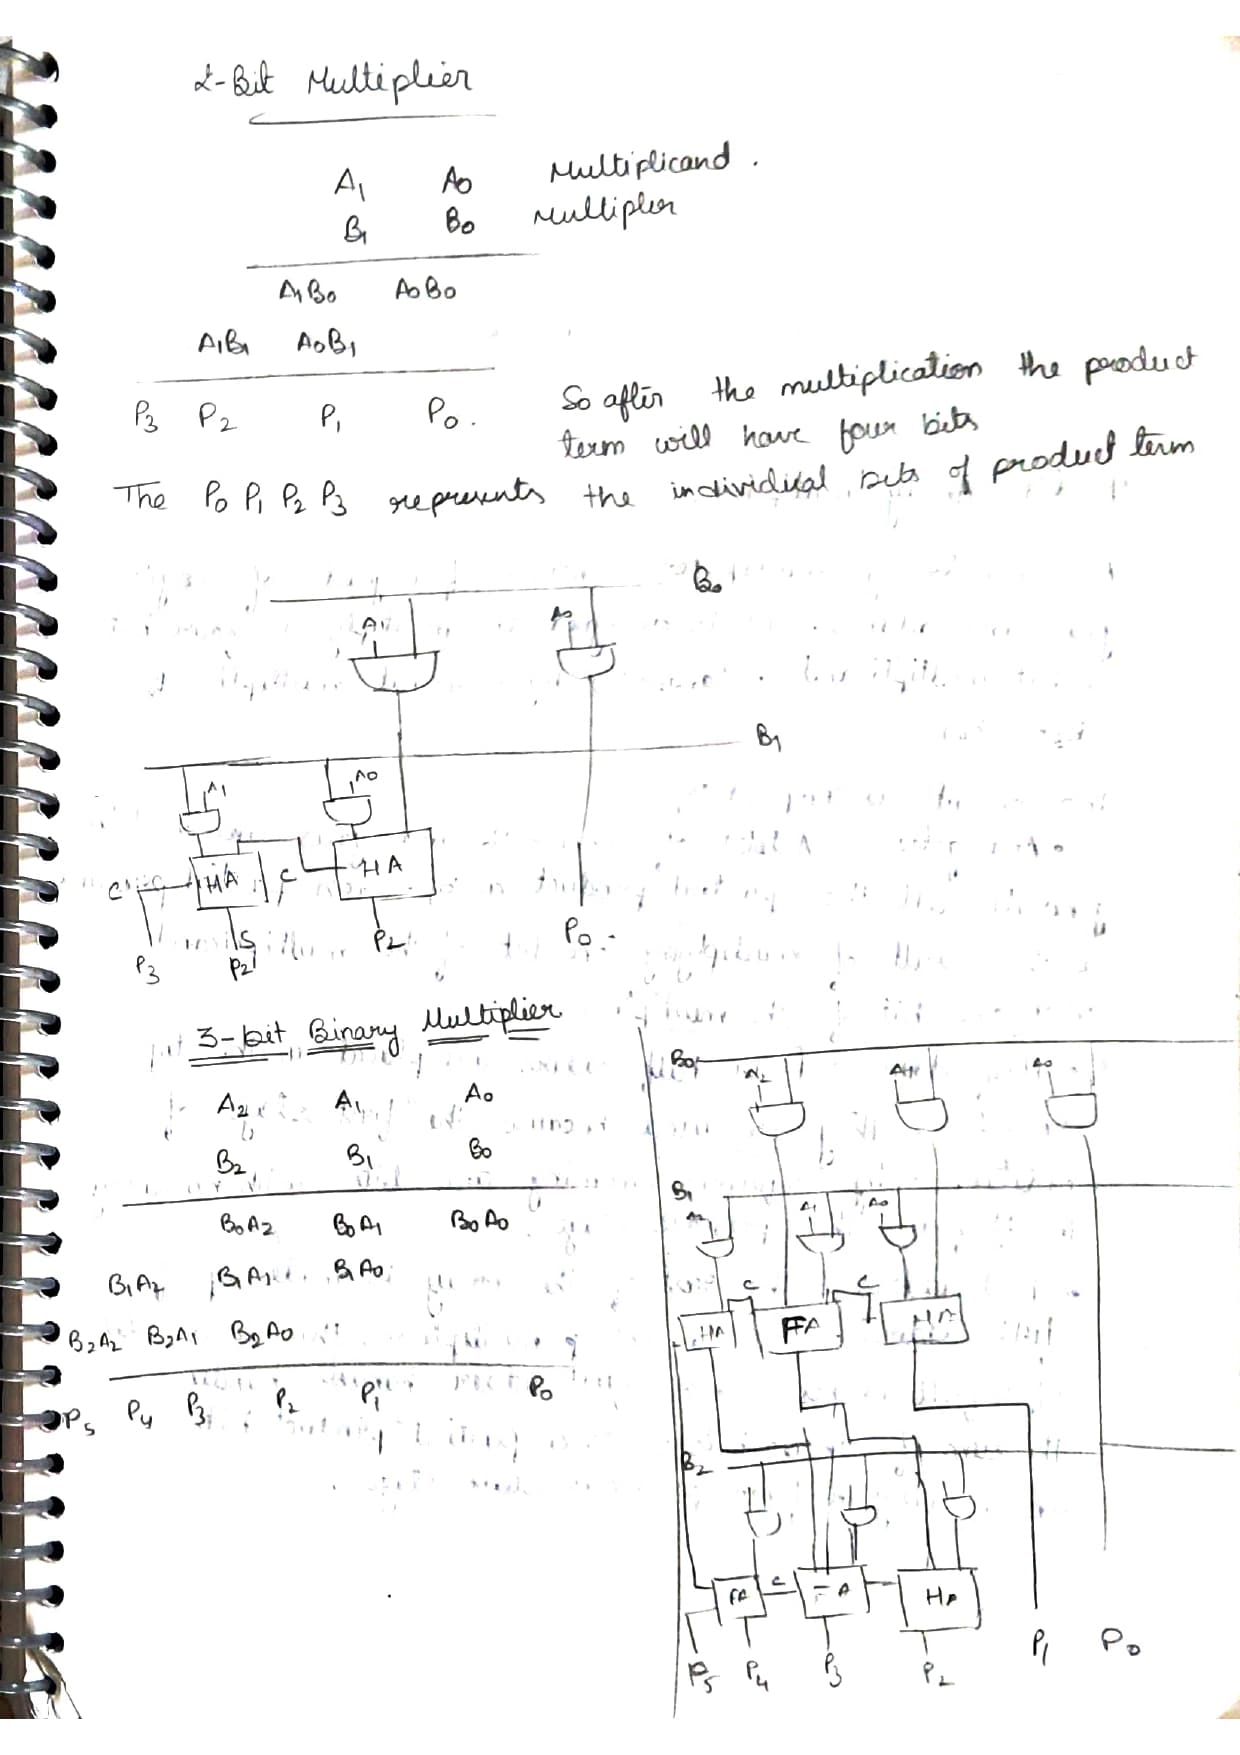 2-Bit Multiplier
A1 A0 Multiplicand .
B1 B0 Multiplier
A1B0 A0B0
A1B1 A0B1
P3 P2 P1 P0 .
So after the multiplication the product
term will have four bits
The P0 P1 P2 P3 represents the individual bits of product term
B0
A1 A0
B1
A1 A0
C HA C HA
P3 S P2 P2 P0 .
3-bit Binary Multiplier
A2 A1 A0
B2 B1 B0
B0A2 B0A1 B0A0
B1A2 B1A1 B1A0
B2A2 B2A1 B2A0
P5 P4 P3 P2 P1 P0
B0
A2 A1 A0
B1
A2 A1 A0
C C
HA FA HA
B2
FA C FA HA
P5 P4 P3 P2 P1 P0